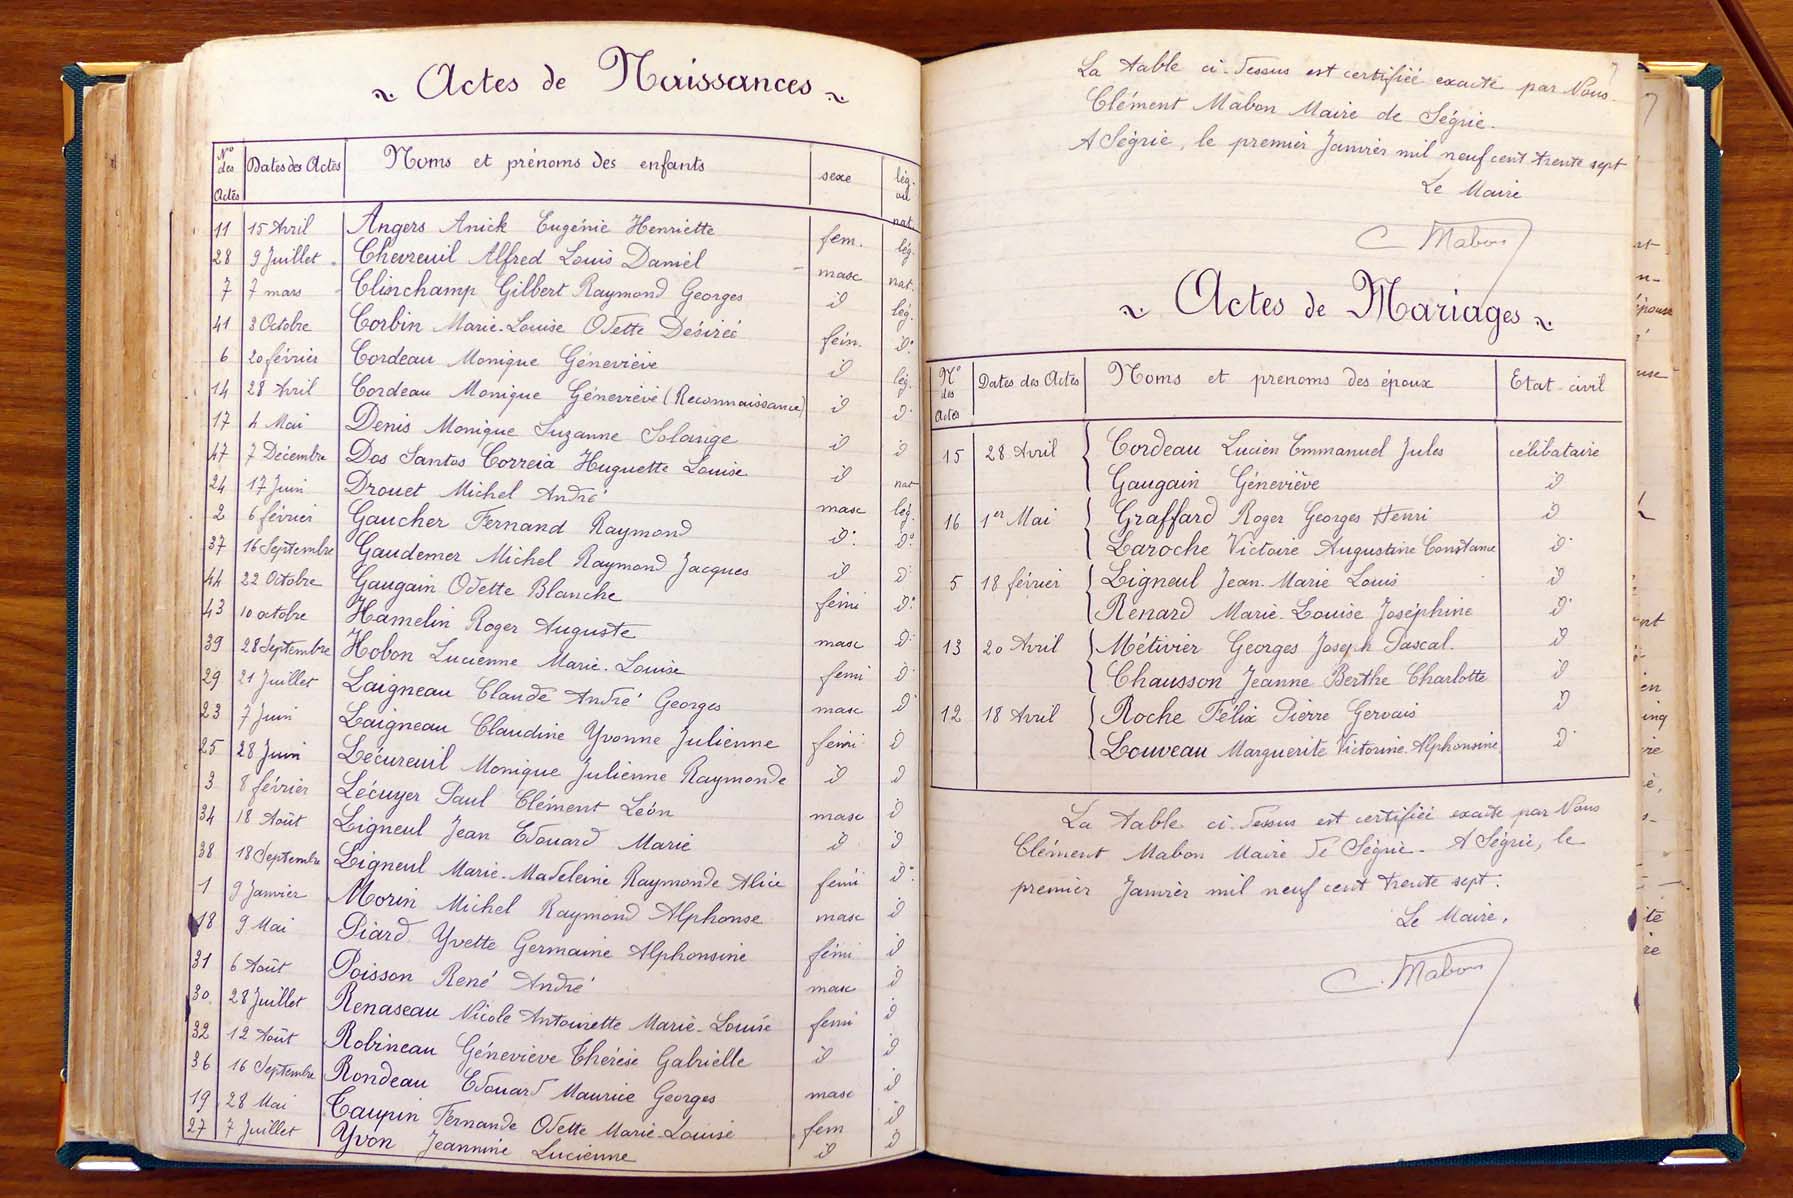 Actes de Naissances
N° des Actes | Dates des Actes | Noms et prénoms des enfants | sexe | lég. ou nat.
11 | 15 Avril | Angers Anick Eugénie Henriette | fem. | lég.
28 | 9 Juillet | Chevreuil Alfred Louis Daniel | masc | nat.
7 | 7 mars | Clinchamp Gilbert Raymond Georges | id | lég.
41 | 3 Octobre | Corbin Marie-Louise Odette Désirée | fém. | d°
6 | 20 février | Cordeau Monique Géneviève | id | lég.
14 | 28 Avril | Cordeau Monique Géneviève (Reconnaissance) | id | d°
17 | 4 Mai | Denis Monique Suzanne Solange | id | d
47 | 7 Décembre | Dos Santos Correia Huguette Louise | id | nat
24 | 17 Juin | Drouet Michel André | masc | lég.
2 | 6 février | Gaucher Fernand Raymond | d° | d°
37 | 16 Septembre | Gaudemer Michel Raymond Jacques | id | d°
44 | 22 Octobre | Gaugain Odette Blanche | fémi | d°
43 | 10 octobre | Hamelin Roger Auguste | masc | d°
39 | 28 Septembre | Hobon Lucienne Marie-Louise | fémi | d
29 | 21 Juillet | Laigneau Claude André Georges | masc | d
23 | 7 Juin | Laigneau Claudine Yvonne Julienne | fémi | d
25 | 28 Juin | Lécureuil Monique Julienne Raymonde | id | d
3 | 8 février | Lécuyer Paul Clément Léon | masc | d
34 | 18 Août | Ligneul Jean Edouard Marie | d | d
38 | 18 Septembre | Ligneul Marie-Madeleine Raymonde Alice | fémi | d°
1 | 9 Janvier | Morin Michel Raymond Alphonse | masc | d
18 | 9 Mai | Piard Yvette Germaine Alphonsine | fémi | d
31 | 6 Août | Poisson René André | masc | d
30 | 28 Juillet | Renaseau Nicole Antoinette Marie-Louise | femi | d
32 | 12 Août | Robineau Géneviève Thérèse Gabrielle | id | d
36 | 16 Septembre | Rondeau Edouard Maurice Georges | masc | d
19 | 28 Mai | Taupin Fernande Odette Marie-Louise | fem | d
27 | 7 Juillet | Yvon Jeannine Lucienne | id | d
La table ci-dessus est certifiée exacte par Nous
Clément Mabon Maire de Ségrie.
A Ségrie, le premier Janvier mil neuf cent trente sept
Le Maire
C. Mabon
Actes de Mariages
N° des Actes | Dates des Actes | Noms et prenoms des époux | Etat civil
15 | 28 Avril | Cordeau Lucien Emmanuel Jules | célibataire
Gaugain Géneviève | id
16 | 1er Mai | Graffard Roger Georges Henri | id
Laroche Victoire Augustine Constance | d°
5 | 18 février | Ligneul Jean-Marie Louis | id
Renard Marie-Louise Joséphine | d°
13 | 20 Avril | Métivier Georges Joseph Pascal. | id
Chausson Jeanne Berthe Charlotte | id
12 | 18 Avril | Roche Félix Pierre Gervais | id
Louveau Marguerite Victorine Alphonsine | d°
La table ci-dessus est certifiée exacte par Nous
Clément Mabon Maire de Ségrie. A Ségrie, le
premier Janvier mil neuf cent trente sept.
Le Maire,
C. Mabon